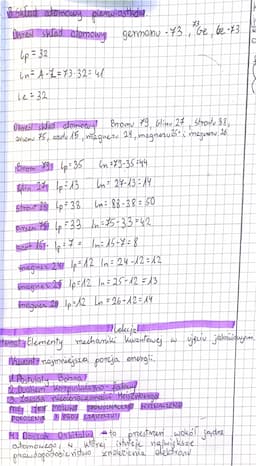 Skład atomowy pierwiastków.
Określ skład atomowy germanu -73, ⁷³Ge, Ge-73
Lp=32
Ln=A-Z=73-32=41
Le=32
Określ skład atomowy: Bromu 79, Glinu 27, Strontu 88,
Arsenu 75, azotu 15, magnezu 24, magnezu 25 i magnezu 26
Brom 79 Lp=35 Ln=79-35=44
Glin 27 Lp=13 Ln=27-13=14
Stront 88 Lp=38 Ln=88-38=50
Arsen 75 Lp=33 Ln=75-33=42
azot 15 Lp=7 Ln=15-7=8
magnez 24 Lp=12 Ln=24-12=12
magnez 25 Lp=12 Ln=25-12=13
magnez 26 Lp=12 Ln=26-12=14
Lekcja
Temat: Elementy mechaniki kwantowej w ujęciu jakościowym.
Kwant: najmniejsza porcja energii.
1. Postulaty Bohra
2. Dualizm korpuskularno-falowy
3. Zasada nieoznaczoności Heisenberga
to przestrzeń wokół jądra
atomowego, w której istnieje największe
prawdopodobieństwo znalezienia elektronu